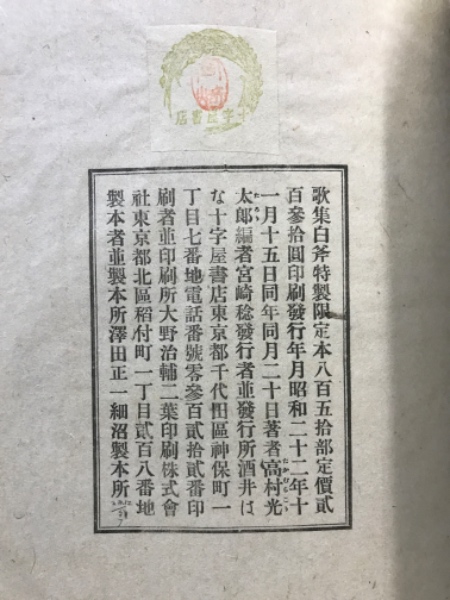 店書屋字十
歌集白斧特製限定本八百五拾部定價貳
百參拾圓印刷發行年月昭和二十二年十
一月十五日同年同月二十日著者高村光
たかむらこう
太郎編者宮崎稔發行者並發行所酒井は
たろう
な十字屋書店東京都千代田區神保町一
丁目七番地電話番號零參百貳拾貳番印
刷者並印刷所大野治輔二葉印刷株式會
社東京都北區稻付町一丁目貳百八番地
製本者並製本所澤田正一細沼製本所